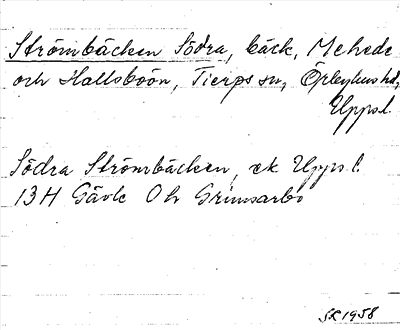 Strömbäcken Södra, bäck, Mehede
och Hallsboön, Tierps sn, Örbyhus hd,
Uppsl.
Södra Strömbäcken, ek Uppsl.
13H Gävle 0h Grimsarbo
SR 1958